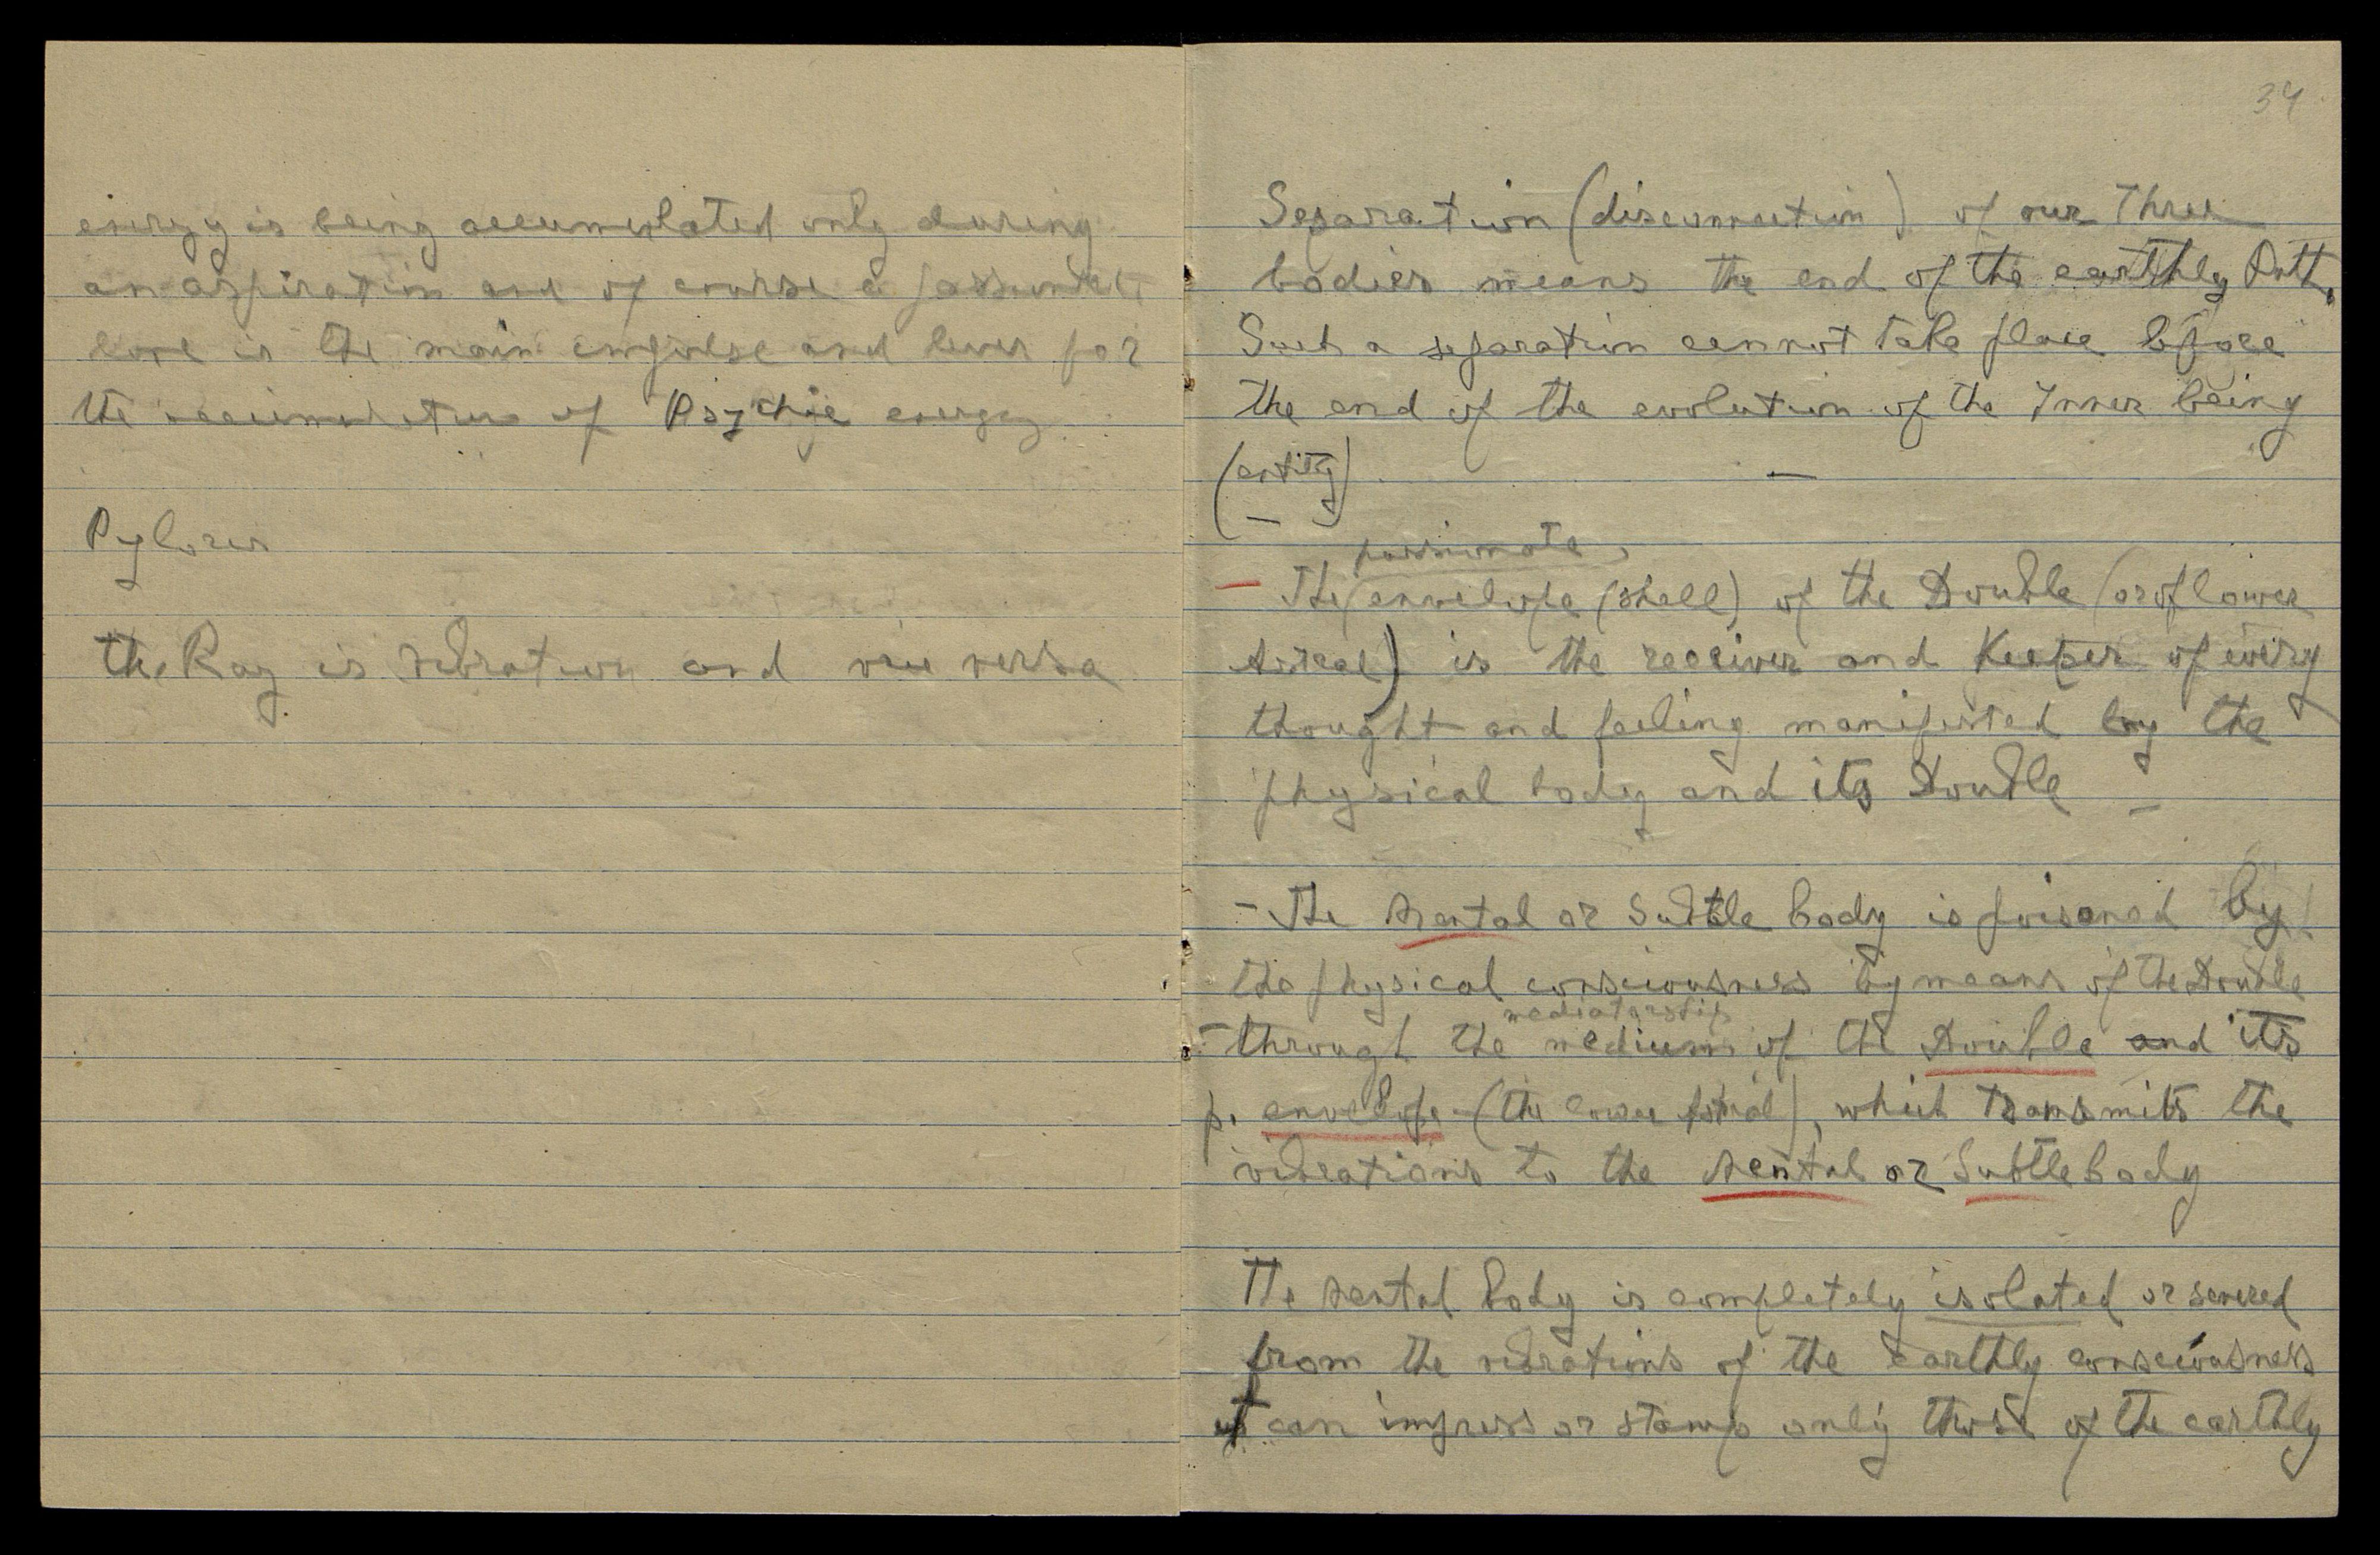 energy is being accumulated only during
an aspiration and of course a passionate
love is the main impulse and lever for
the accumulation of Psychic energy
Pylorus
the Ray is vibration and vice versa
34
Separation (disconnection) of our Three
bodies means the end of the earthly Path.
Such a separation cannot take place before
the end of the evolution of the Inner being
(entity) —
—
passionate,
— The (envelope (shell) of the Double (or of lower
Astral) is the receiver and Keeper of every
thought and feeling manifested by the
physical body and its Double —
- The Mental or Subtle body is poisoned by
the physical consciousness by means of the Double
mediatorship
- through the medium of the Double and its
p. envelope (the lower Astral), which transmits the
vibrations to the Mental or Subtle body
The Mental body is completely isolated or severed
from the vibrations of the earthly consciousness
it can impress or stamp only those of the earthly